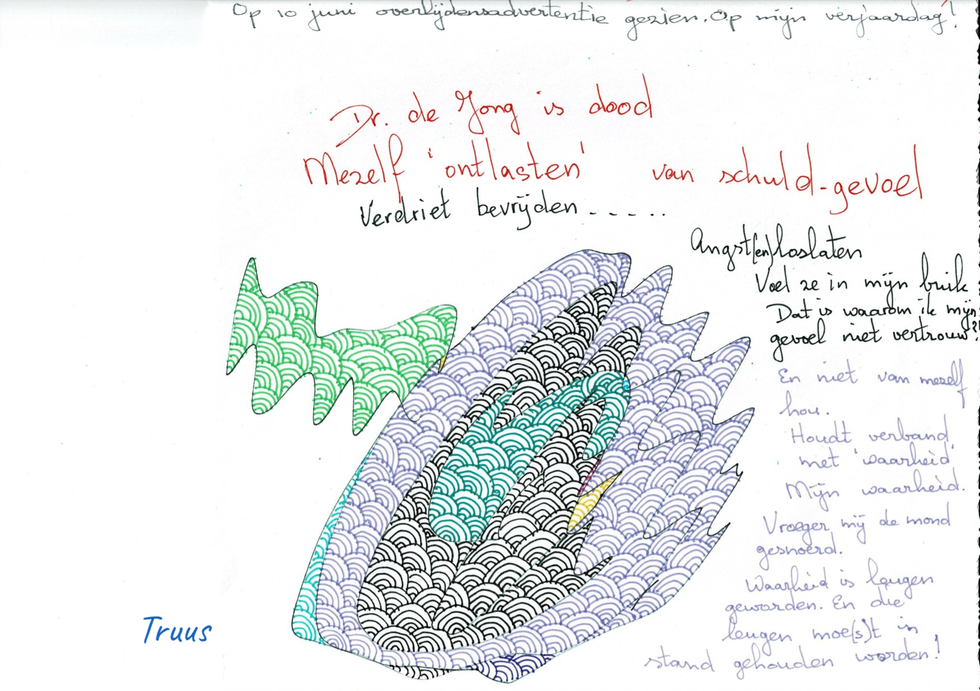 Op 10 juni overlijdensadvertentie gezien. Op mijn verjaardag!
Dr. de Jong is dood
Mezelf 'ontlasten' van schuld-gevoel
Verdriet bevrijden - - - . .
Angst(en) loslaten
Voel ze in mijn buik
Dat is waarom ik mijn
gevoel niet vertrouw?
En niet van mezelf
hou.
Houdt verband
met 'waarheid'
Mijn waarheid.
Vroeger mij de mond
gesnoerd.
Waarheid is leugen
geworden. En die
leugen moe(s)t in
stand gehouden worden!
Truus